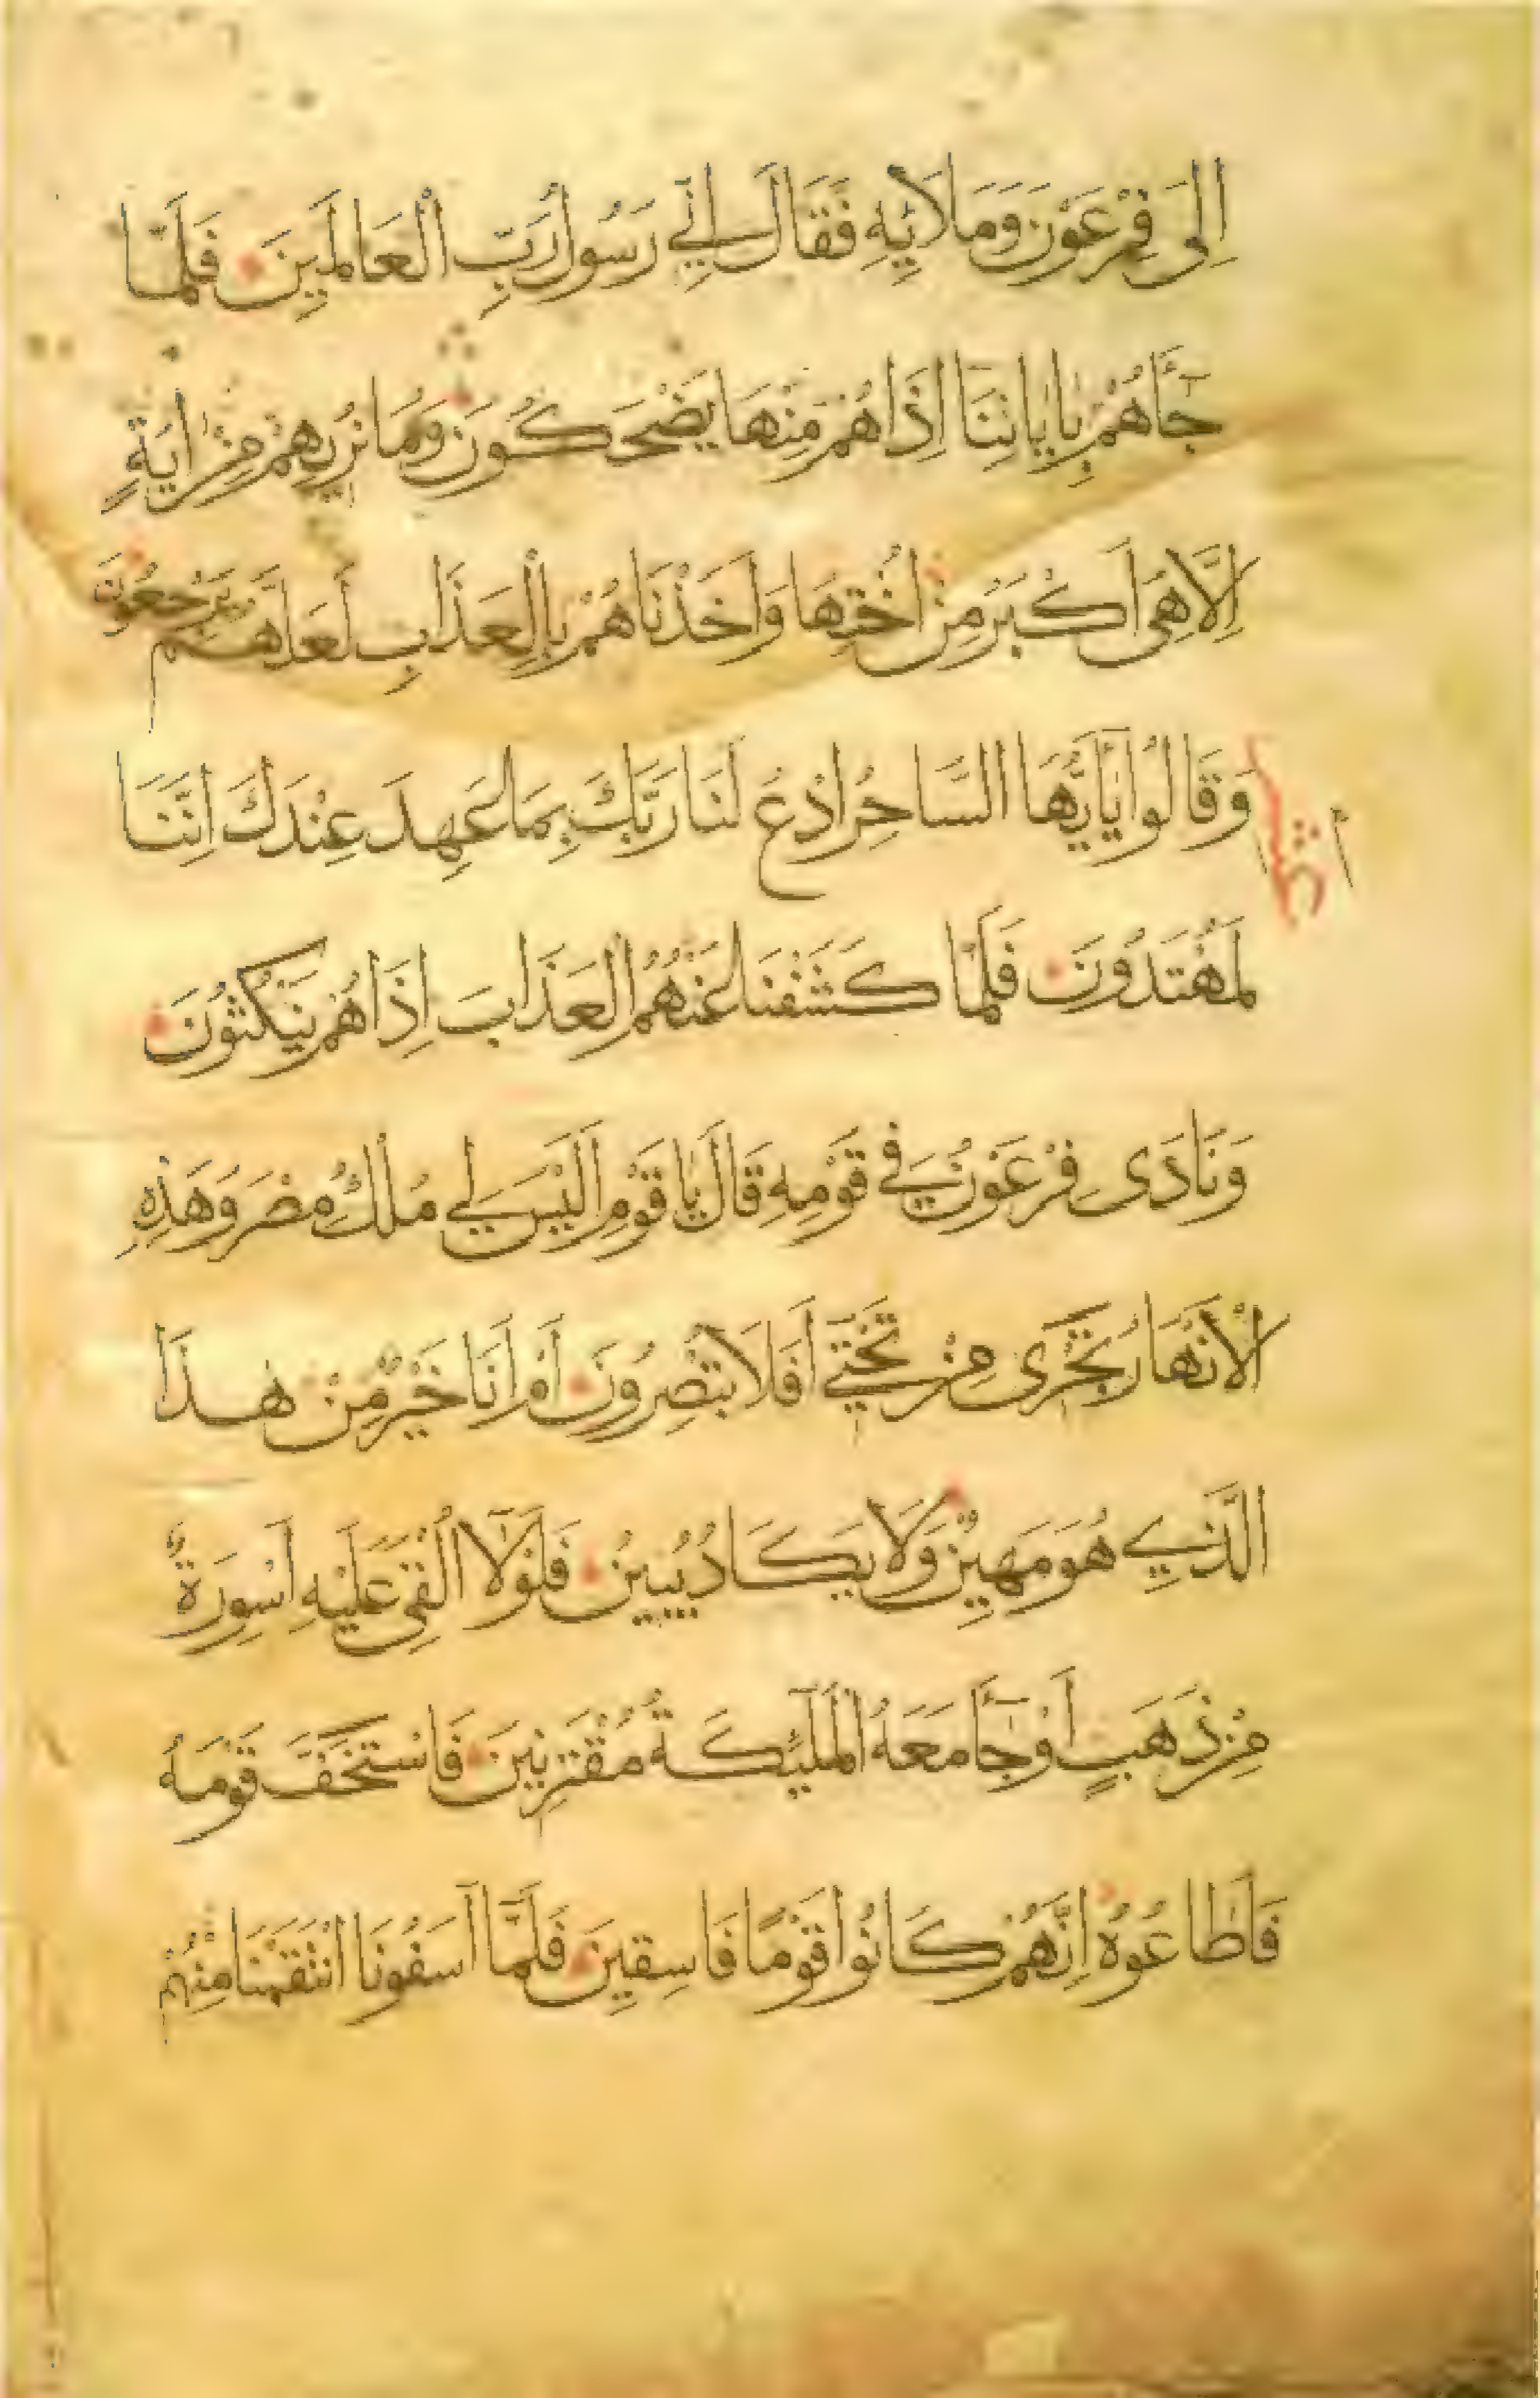 اِلَى فِرْعَوْنَ وَمَلَائِهِ فَقَالَ اِنِّي رَسُولُ رَبِّ الْعَالَمِينَ فَلَمَّا
جَآءَهُمْ بِاٰيَاتِنَا اِذَا هُمْ مِنْهَا يَضْحَكُونَ وَمَا نُرِيهِمْ مِنْ اٰيَةٍ
اِلَّا هِىَ اَكْبَرُ مِنْ اُخْتِهَا وَاَخَذْنَاهُمْ بِالْعَذَابِ لَعَلَّهُمْ يَرْجِعُونَ
وَقَالُوا يَآاَيُّهَا السَّاحِرُ ادْعُ لَنَا رَبَّكَ بِمَا عَهِدَ عِنْدَكَ اِنَّنَا
لَمُهْتَدُونَ فَلَمَّا كَشَفْنَا عَنْهُمُ الْعَذَابَ اِذَا هُمْ يَنْكُثُونَ
وَنَادَى فِرْعَوْنُ فِي قَوْمِهِ قَالَ يَا قَوْمِ اَلَيْسَ لِي مُلْكُ مِصْرَ وَهَذِهِ
الْاَنْهَارُ تَجْرِى مِنْ تَحْتِي اَفَلَا تُبْصِرُونَ اَمْ اَنَا خَيْرٌ مِنْ هَذَا
الَّذِي هُوَ مَهِينٌ وَلَا يَكَادُ يُبِينُ فَلَوْلَآ اُلْقِىَ عَلَيْهِ اَسْوِرَةٌ
مِنْ ذَهَبٍ اَوْ جَآءَ مَعَهُ الْمَلٰئِكَةُ مُقْتَرِنِينَ فَاسْتَخَفَّ قَوْمَهُ
فَاَطَاعُوهُ اِنَّهُمْ كَانُوا قَوْمًا فَاسِقِينَ فَلَمَّآ اٰسَفُونَا انْتَقَمْنَا مِنْهُمْ